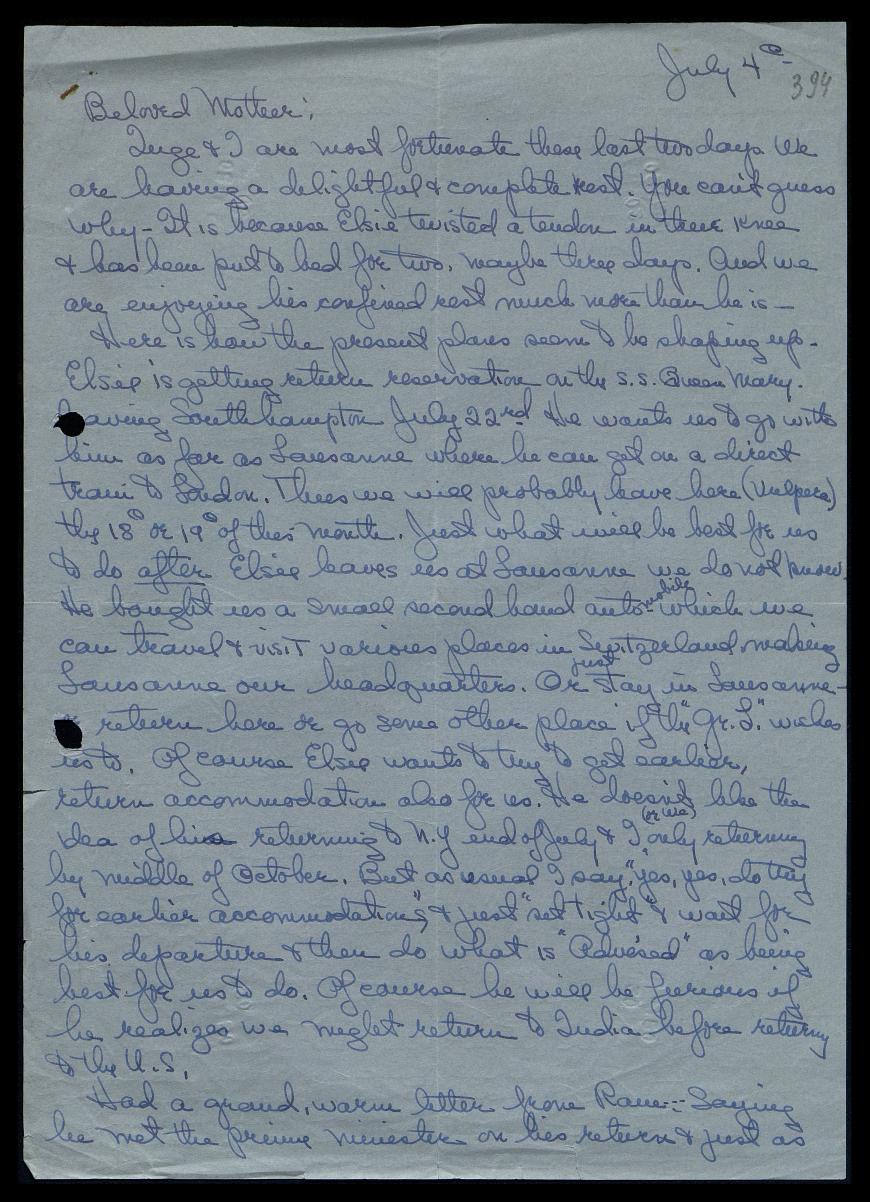 July 4th
394
Beloved Mother;
Inge & I are most fortunate these last two days. We
are having a delightful & complete rest. You can't guess
why – It is because Elsie twisted a tendon in there knee
& has been put to bed for two, maybe three days. And we
are enjoying his confined rest much more than he is –
Here is how the present plans seem to be shaping up.
Elsie is getting return reservation on the S.S. Queen Mary.
leaving Southhampton July 22nd He wants us to go with
him as far as Lausanne where he can get on a direct
train to London. Thus we will probably leave here (Vulpera)
the 18th or 19th of this month. Just what will be best for us
to do after Elsie leaves us at Lausanne we do not know.
He bought us a small second hand automobile which we
can travel & visit various places in Switzerland, making
Lausanne our headquarters. Or just stay in Lausanne –
or return here or go some other place if the "Gr. S." wishes
us to. Of course Elsie wants to try to get earlier,
return accommodation also for us. He doesn't like the
idea of his returning to N.Y end of July & I (or we) only returning
by middle of October. But as usual I say "yes, yes, do try
for earlier accommodations", & just "set tight" & wait for
his departure & then do what is "Advised" as being
best for us to do. Of course he will be furious if
he realizes we might return to India before returning
to the U.S.
Had a grand, warm letter from Saying
he met the prime minister on his return & just as